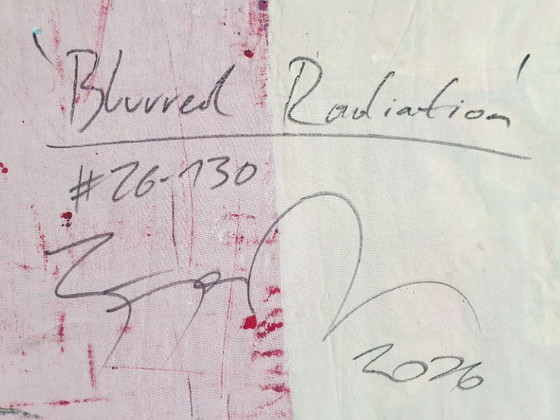 'Blurred Radiation'
#26-130
2026